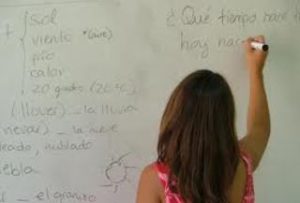 sol
viento *(aire)
frío
calor
20 grados (20 ºC)
(llover) _ la lluvia
nevar) _ la nieve
eado, nublado
ebla
el granizo
¿Qué tiempo hace
hoy hace